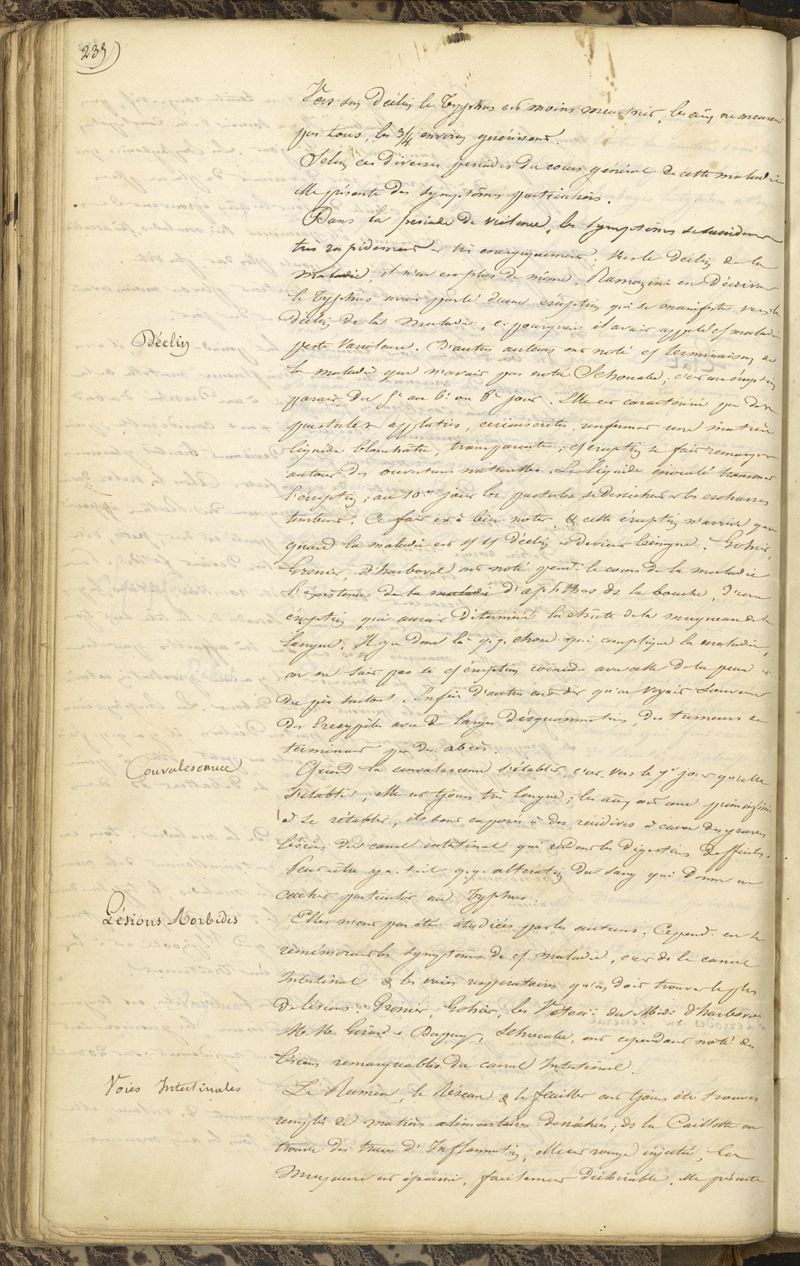 239
Vers son Déclin le Typhus est moins meurtrier, les anx ne meurent
pas tous, les 3/4 environ guérissent.
Selon ces diverses périodes du cours général de cette maladie
elle présente des symptômes particuliers.
Dans la période de violence, les symptômes se succèdent
très rapidement et très énergiquement ; vers le déclin de la
maladie, il n'en est plus de même. Ramazini en décrivant
le Typhus avait parlé d'une éruption qui se manifeste vers le
Déclin
déclin de la maladie, c. pourquoi il avait appelé cte maladie
peste varioleuse. D'autres auteurs ont noté cte terminaison de
la maladie que n'avait pas noté Schouabe ; c'est une éruption
parait du 5e au 6e ou 8e jour. Elle est caractérisée par des
pustules applaties, circonscrites, renfermant une matière
liquide blanchâtre, transparente ; cte éruption se fait remarquer
autour des ouvertures naturelles. Le liquide inoculé
l'éruption ; au 10me jour les pustules se dessèchent et les escharres
tombent. Ce fait est à bien noter, & cette éruption n'arrive que
quand la maladie est déclin et devient bénigne. Gohier,
Grenier, d'harboval ont noté pendt le cours de la maladie
l'existence de la maladie d'aphthes de la bouche, d'une
éruption qui aurait déterminé la chûte de la muqueuse de la
langue. Il y a donc là q.q. chose qui complique la maladie,
on ne sait pas si cte éruption coincide avec celle de la peau
du pis surtout. Enfin d'autres ont dit qu'on voyait survenir
des Erésypèles avec de larges désquammations, des tumeurs se
terminant par des abcès.
Convalescence
Quand la convalescence s'établit, c'est vers le 9e jour qu'elle
s'établit, elle est tjours très longue ; les anx ont une peine infinie
à se rétablir, ils sont exposés à des récidives à cause des graves
lésions du canal intestinal qui rendent les digestions difficiles.
Peut-être y a-t-il q.q. altération du sang qui donne un
cachet particulier au Typhus.
Lésions Morbides
Elles n'ont pas été étudiées par les auteurs. Cependt en se
remémorant les symptômes de cte maladie, c'est de le canal
Intestinal & les voies respiratoires qu'on doit trouver le plus
de lésions. Grenier, Gohier, les Vétéri. du Midi d'harboval
MM. Girard et Dupuy, Schouabe, ont cependant noté des
lésions remarquables du canal Intestinal.
Voies Intestinales
Le Rumen, le Réseau & le feuillet ont tjours été trouvés
remplis de matières alimentaires desséchées ; ds la Caillette on
trouve des traces d'Inflammation, elle est rouge injectée, la
Muqueuse est épaissie, facilement déchirable. Elle présente